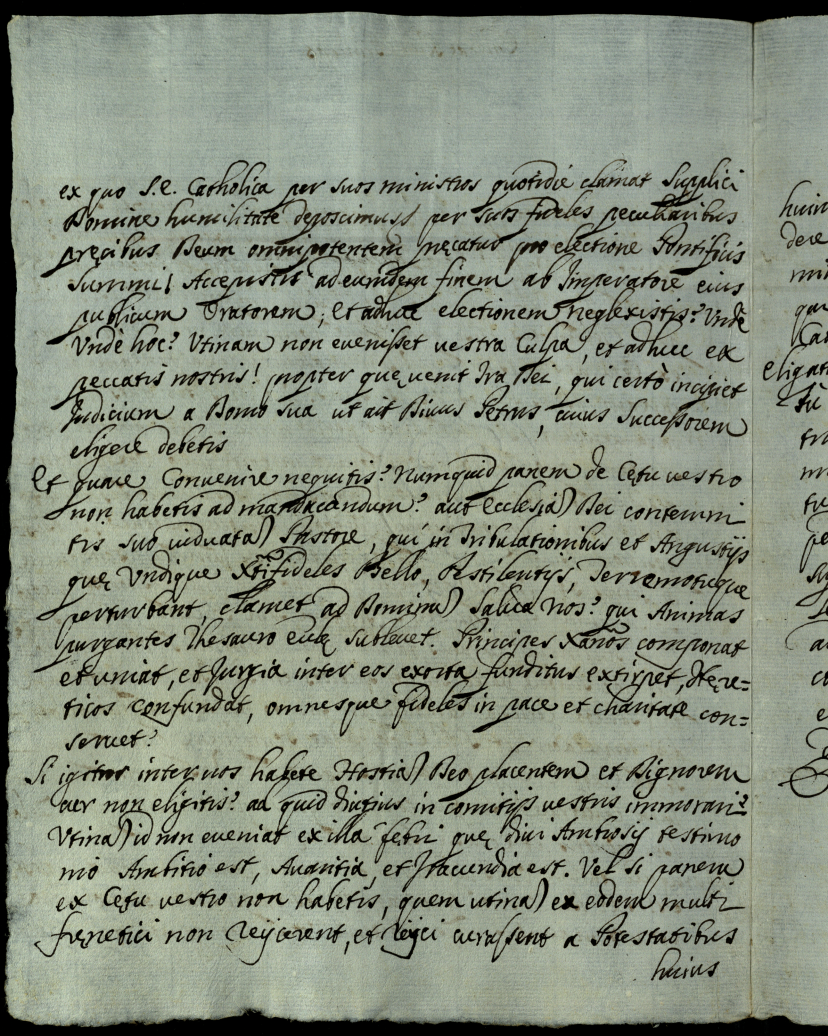 ex quo S.E. Catholica per suos ministros quotidie clamat Supplici
Domine humilitate deposcimus per tuos fideles peculiaribus
pręcibus Deum omnipotentem pręcatur pro electione Pontificis
Summi! Accepistis ad eumdem finem ab Imperatore eius
publicum Oratorem; et adhuc electionem neglexistis? Undè
Undè hoc? Utinam non evenisset vestra Culpa, et adhuc ex
peccatis nostris! propter quę venit Ira Dei, qui certò incipiet
Judicium a Domo sua ut ait Divus Petrus, cuius Successorem
eligere debetis
Et quare Convenire nequitis? Numquid panem de Cętu vestro
non habetis ad manducandum? aut Ecclesia) Dei contemni
tis sub viduata) Pastore, qui in Tribulationibus et Angustijs
quę Undique Xti fideles Bello, Pestilentijs, Terremotuque
perturbant, clamet ad Dominu) Salva nos? qui Animas
purgantes Thesauro Eccłę sublevet. Principes Xanos componat
et uniat, et Jurgia inter eos exorta funditus extirpet, Hęre=
ticos confundat, omnesque fideles in pace et charitate con=
servet?
Si igitur inter vos habete Hostia) Deo placentem et Digniorem
cur non eligitis? ad quid diutius in comitijs vestris immorari?
Utina) id non eveniat ex illa febri quę divi Ambrosij testimo
nio Ambitio est, Avaritia, et Iracundia est. Vel si panem
ex Cętu vestro non habetis, quem utina) ex eodem multi
fręnetici non reijcerent, et reijci curassent a Potestatibus
huius
huiu
eligat